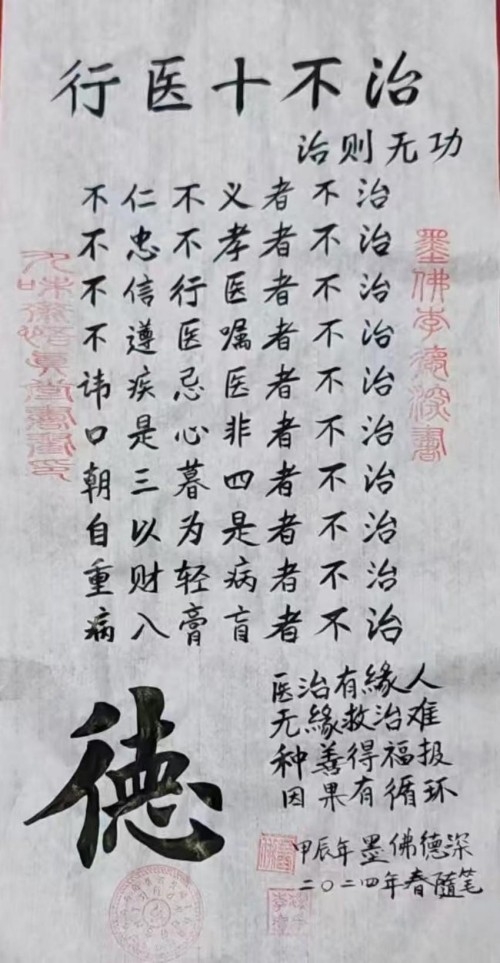 行医十不治
治则无功
不仁不义者不治
不忠不孝者不治
不信行医者不治
不遵医嘱者不治
讳疾忌医者不治
口是心非者不治
朝三暮四者不治
自以为是者不治
重财轻病者不治
病入膏肓者不治
墨佛李德深書
德
医治有緣人
无緣救治难
种善得福报
因果有循环
甲辰年墨佛德深
二〇二四年春随笔